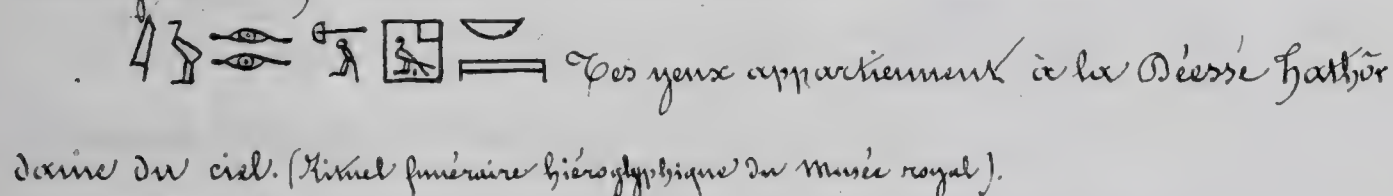 Tes yeux appartiennent à la Déesse hathôr
dame du ciel. (Rituel funéraire hiéroglyphique du musée royal).